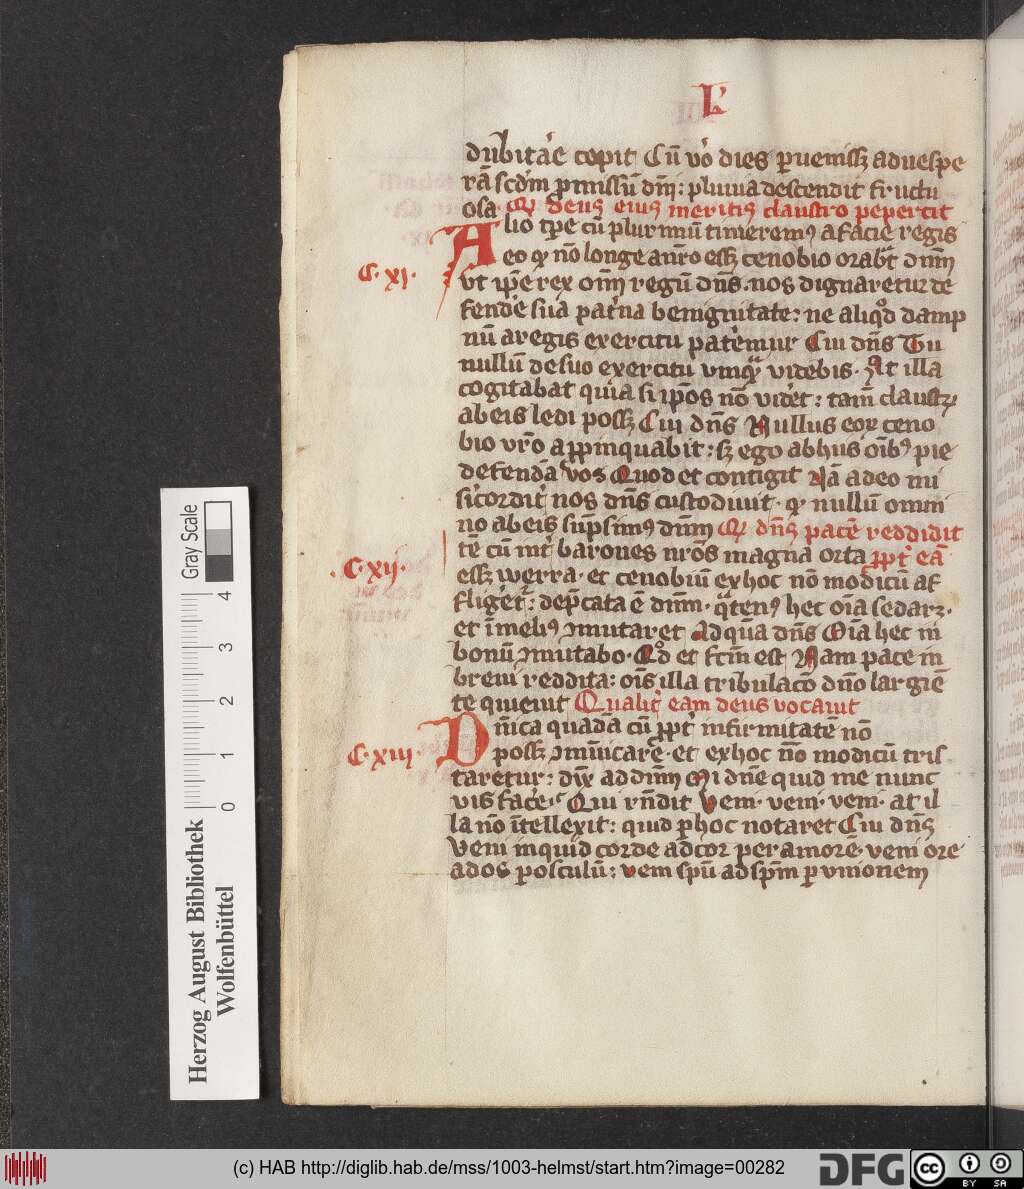 L'
dubitar̄e cepit Cū vo᷒ dies ꝑuenissꝫ aduespe
rā scdm̄ ꝓmissū dn̄i: pluuia descendit fructu
osa Qꝛ deus eius meritis claustro pepercit
Alio tꝑe cū plurimū timerem᷒ a facie regis
C·xi·
eo qꝛ nō longe a nr̄o essꝫ cenobio orabt̄ dnm̄
vt ip̄e rex om̄i regū dn̄s·nos dignaretur de
fende᷒ suā pat᷒na benignitate: ne aliqͦd damp
nū a regis exercitu pate᷒mur Cui dn̄s Tu
nullū de suo exercitu vmqᷓ videbis· At illa
cogitabat quia si ip̄os nō vide᷒t: tam̄ claustꝝ
ab eis ledi possꝫ Cui dn̄s Nullus eoꝝ ceno
bio vr̄o appinquabit: sꝫ ego ab hus oib᷒ pie
defendā vos Quod et contigit Nā adeo mi
sicordit᷒ nos dn̄s custodiuit· qꝛ nullū omni
no ab eis sūpsim᷒ dnm̄ Qꝛ dn̄s pacē reddidit
tē cū int᷒ barones nr̄os magna orta ꝓpt᷒ eā
C·xij·
essꝫ werra· et cenobiū ex hoc nō modicū af
fliget᷒: dep̄cata ē dnm̄· qᷓten᷒ hec oīa sedarꝫ·
et ī meli᷒ ꝯmutaret Ad quā dn̄s Oīa hec in
bonū ꝯmutabo· Qͦd et fcm̄ est Nam pace in
breui reddita: oīs illa tribulacō dn̄o largiē
te quieuit Qualit᷒ eam deus vocauit
Dn̄ica quadā cū ꝓpt᷒ infirmitatē nō
C·xiii·
possꝫ ꝯmūicare· et ex hoc nō modicū tris
taretur: dix̄ ad dnm̄ Mi dn̄e quid me nunc
vis face᷒ Qui rn̄dit Veni· veni· veni· at il
la nō ītellexit: quid ꝑ hoc notaret Cui dn̄s
Veni inquid corde ad cor per amorē· veni ore
ad os ꝑ osculū: veni spū ad spm̄ ꝑ vnionem
Herzog August Bibliothek
Wolfenbüttel
Gray Scale
0 1 2 3 4
(c) HAB http://diglib.hab.de/mss/1003-helmst/start.htm?image=00282
DFG
cc BY SA